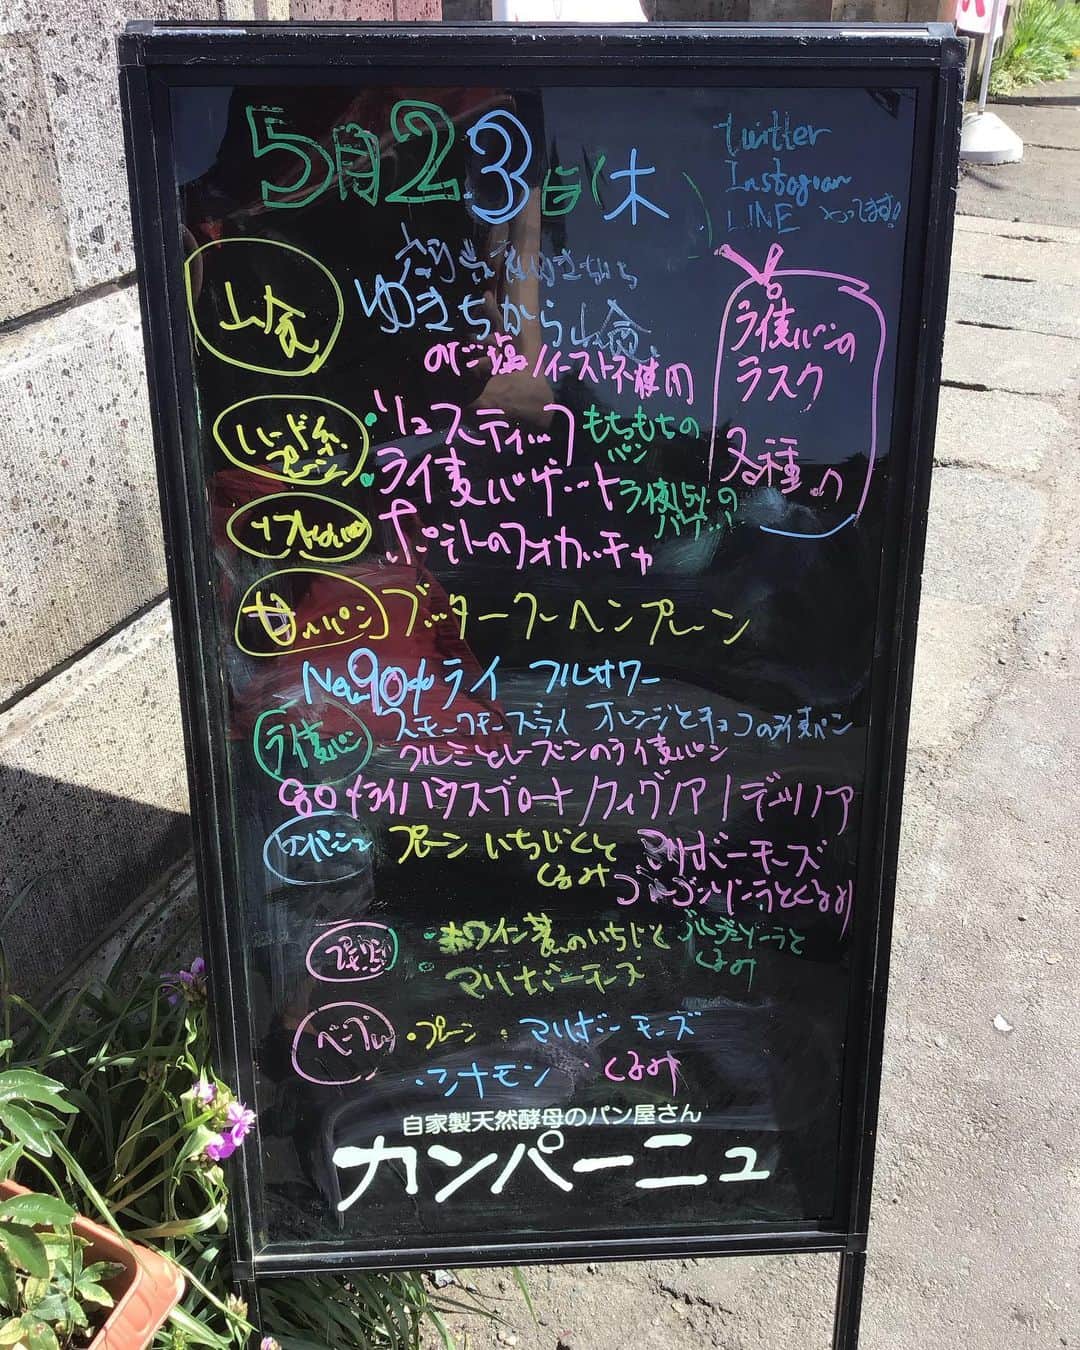 5月23日(木)
twitter
Instagram
LINE やってます!
山食
ゆきちから山食
のだ塩/イースト不使用
ライ麦パンの
ラスク
各種
ハード系
プレーン
・リュスティック もちもちの
パン
・ライ麦バゲット ライ麦15%の
バゲット
ポテトのフォカッチャ
甘いパン ブッタークーヘンプレーン
New90%ライ フルサワー
ライ麦パン スモークチーズライ オレンジとチョコのライ麦パン
クルミとレーズンのライ麦パン
80%ライハウスブロート/フィグノア/デュノア
カンパーニュ プレーン いちじくと
くるみ
マリボーチーズ
ゴルゴンゾーラとくるみ
・赤ワイン煮のいちじく ゴルゴンゾーラと
くるみ
マリボーチーズ
ベーグル ・プレーン ・マリボーチーズ
・シナモン ・くるみ
自家製天然酵母のパン屋さん
カンパーニュ